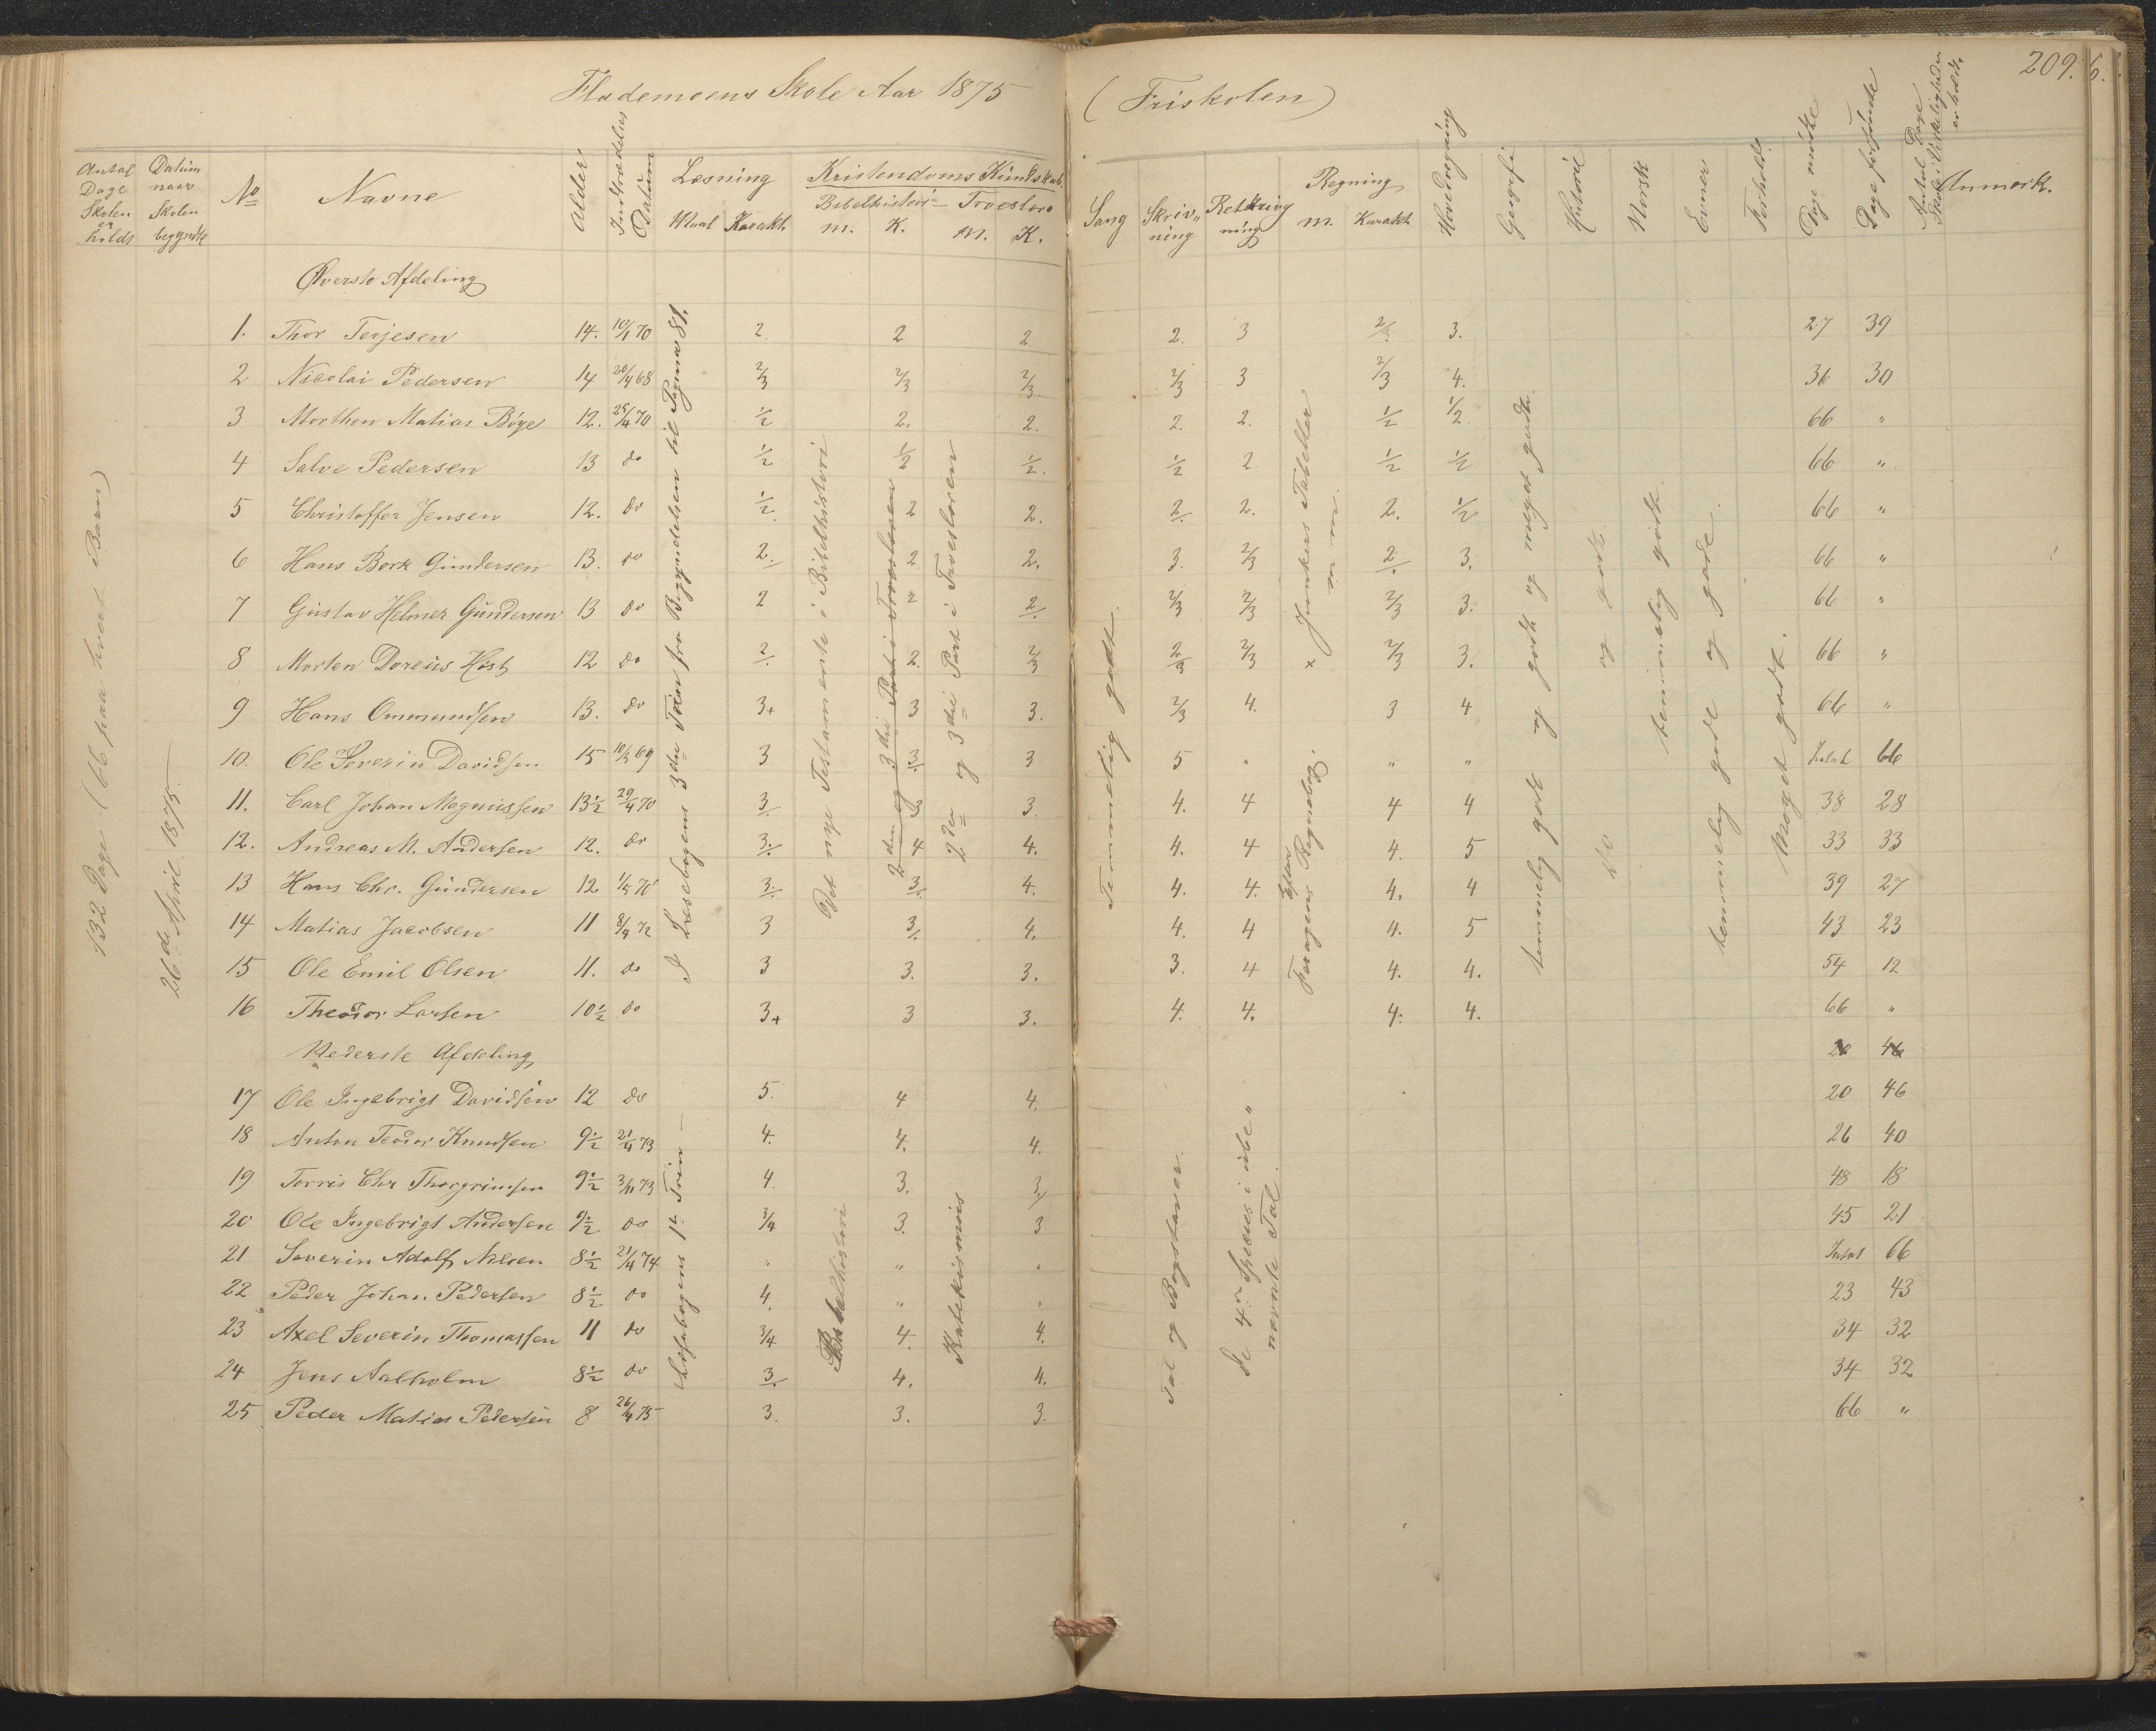 Flademoens Skole Aar 1875 (Friskolen) 209.
Antal Dage Skolen er holdt
Datum naar Skolen begyndte
No
Navne
Alder
Indtrædelses Datum
Læsning
Maal Karakt.
Kristendoms Kundskab.
Bibelhistorie Troeslære
m. K. m. K.
Sang
Skrivning
Retskrivning
Regning
m. Karakt.
Hovedregning
Geografi
Historie
Norsk
Evner
Forhold.
Dage mødte
Dage forsømte
Anmærk.
Øverste Afdeling
132 Dage (66 paa hvert Barn)
26de April 1875.
1. Thor Terjesen 14. 10/1 70 2. 2 2 2. 3 2/3 3. 27 39
2 Nicolai Pedersen 14 20/4 68 2/3 2/3 2/3 2/3 3 2/3 4. 36 30
3 Morthen Matias Bøye 12. 25/4 70 1/2 2. 2. 2. 2. 1/2 1/2 66 "
4 Salve Pedersen 13 do 1/2 1/2 1/2. 1/2 2 1/2 1/2 66 "
5 Christoffer Jensen 12. do 1/2 2 2. 2/. 2. 2. 1/2 66 "
6 Hans Bork Gundersen 13. do 2/. 2 2. 3. 2/3 2/. 3. 66 "
7 Gustav Helmer Gundersen 13 do 2 2 2/. 2/3 2/3 2/3 3. 66 "
8 Morten Doreus Høst 12 do 2/. 2. 2/3 2/3 2/3 2/3 3. 66 "
9 Hans Ommundsen 13. do 3+ 3 3. 2/3 4. 3 4 66 "
10. Ole Severin Davidsen 15 10/5 69 3 3/. 3 5 " " " 66
11. Carl Johan Magnussen 13 1/2 29/4 70 3/. 3 3. 4. 4 4 4 38 28
12. Andreas M. Andersen 12. do 3/. 4 4. 4. 4 4. 5 33 33
13 Hans Chr. Gundersen 12 1/5 70 3/. 3/. 4. 4. 4. 4. 4 39 27
14 Matias Jacobsen 11 8/4 72 3 3/. 4. 4. 4 4. 5 43 23
15 Ole Emil Olsen 11. do 3 3. 3. 3. 4 4. 4. 54 12
16 Theodor Larsen 10 1/2 do 3+ 3 3. 4. 4. 4. 4. 66 "
I Læsebogens 3die Trin fra Begyndelsen til Pagina 81.
Det nye Testamente i Bibelhistorie
2den og 3die Part i Troeslæren
2den og 3die Part i Troeslæren
Temmelig godt.
Efter Foragens Regnebog.
x Junkers Tabeller m m
temmelig godt og godt og meget godt.
do og godt.
temmelig godt.
temmelig gode og gode.
Meget godt.
Nederste Afdeling
17 Ole Ingebrigt Davidsen 12 do 5. 4 4. 20 46
18 Anton Teodor Knudsen 9 1/2 21/4 73 4. 4. 4. 26 40
19 Torris Chr Thorgrimsen 9 1/2 3/11 73 4. 3. 3/. 48 18
20 Ole Ingebrigt Andersen 9 1/2 do 3/4 3. 3 45 21
21 Severin Adolf Nilsen 8 1/2 21/4 74 " " " 66
22 Peder Johan Pedersen 8 1/2 do 4. " " 23 43
23 Axel Severin Thomassen 11 do 3/4 4. 4. 34 32
24 Jens Aalholm 8 1/2 do 3/. 4. 4. 34 32
25 Peder Matias Pedersen 8 26/4 75 3. 3. 3. 66 "
Læsebogens 1te Trin
Bibelhistorie
Katekismus
Tal og Bogstaver.
De 4re Species i ube" nævnte Tal.